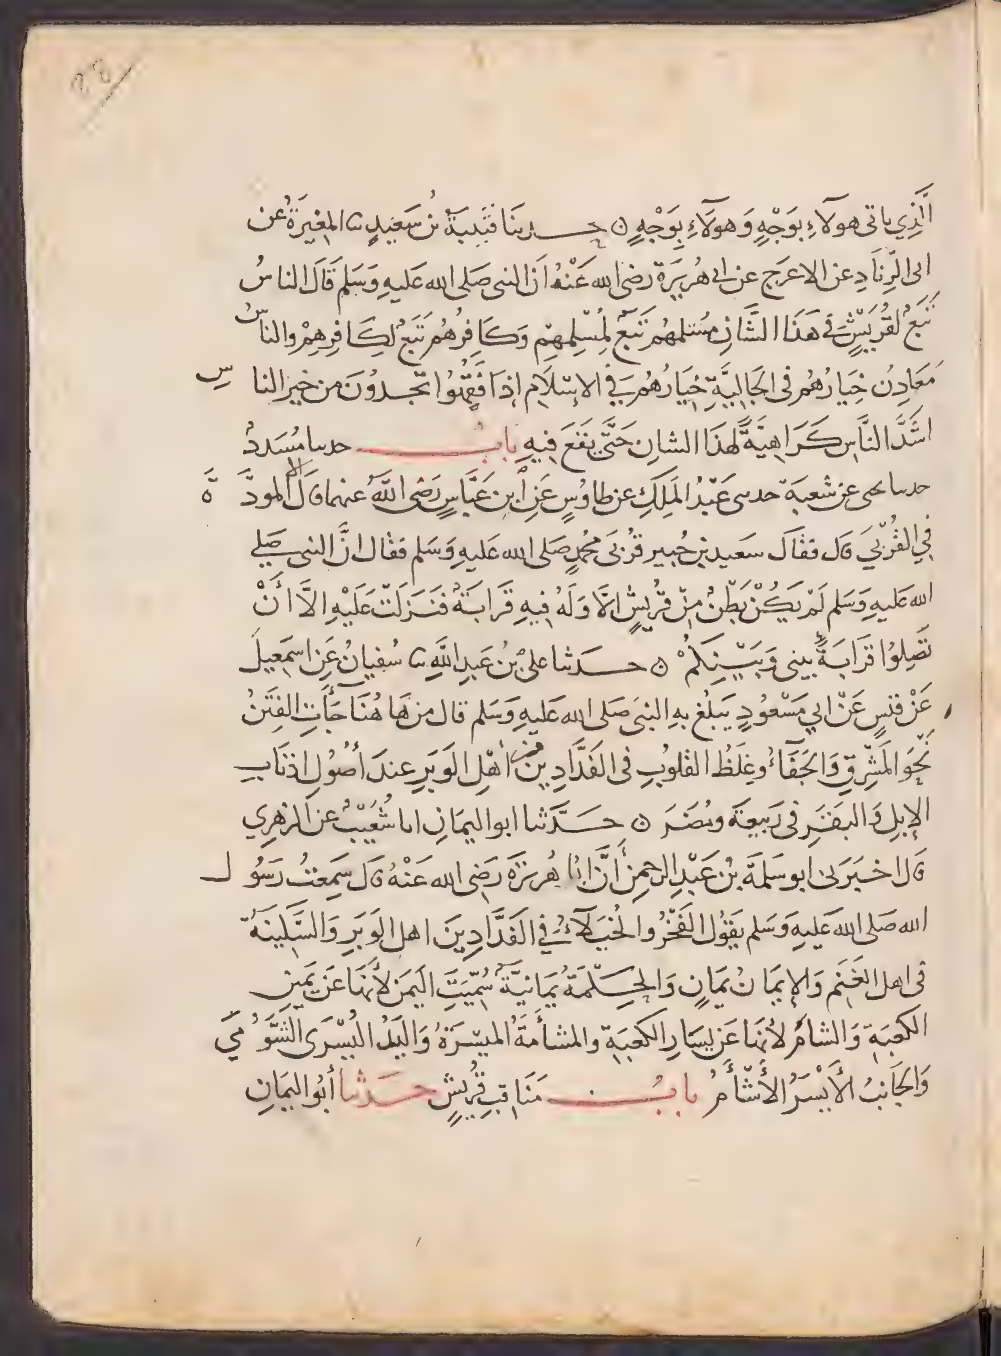 الَّذِي ياتى هولآءِ بوَجْهٍ وَهولَآءِ بِوَجْهٍ ۝ حـــدثنا قتَيبَةُ بنُ سَعيدٍ ثنا المغِيَرةُ عن
ابى الزِّنَادِ عن الاعرَجِ عن ابى هُرَيرَةَ رضى الله عَنْهُ اَنّ النبى صَلى الله عَليهِ وَسَلم قَالَ الناسُ
تَبَعٌ لقُرَيشٍ فى هَذا الشَّانِ مُسْلمهُم تَبَعٌ لِمُسْلِمِهِم وَكَافرُهُم تَبَعٌ لِكَافِرِهِمْ والناسُ
مَعَادِن خِيَارُهُم فى الجَاهليَّةِ خِيَارُهُم فِي الاِسْلَامِ اِذَا فَقِهُوا تجدُونَ من خَيرِ الناسِ
اَشَدَّ النَّاسِ كَرَاهِيَةً لهَذا الشانِ حَتَّى يَقعَ فِيهِ بابٌ حدثنا مُسَدّدٌ
حدثنا يحيى عن شعبَة حدثنى عَبْدُ المَلِكِ عن طاوُسٍ عَنِ ابنِ عَبَّاسٍ رَضى اللهُ عنهما قال الا المودَّةَ
فِي القُرْبَى قال فقالَ سعيد بن جُبير قُربَى محُمَّدٍ صَلى الله عَليهِ وَسَلم فقال انَّ النبى صَلى
الله عَليهِ وَسَلم لَمْ يَكُنْ بَطنٌ مِنْ قُرَيشٍ اِلَّا وَلَهُ فيهِ قَرَابَةٌ فَنَزلَت عَلَيْهِ اِلَّا اَنْ
تَصِلُوا قَرَابَةً بينى وَبَيْنَكُمْ ۝ حـــدَثنا علىُّ بنُ عَبدِ اللهِ ثنا سُفيانُ عَن اسمَعيلَ
عَنْ قيسٍ عَنْ ابي مَسْعُودٍ يَبلُغ بهِ النبىَ صَلى الله عَليهِ وَسَلم قال من هَا هُنَا جَآءَتِ الفِتَنُ
نَحْوَ المَشرِقِ وَالجَفَآءُ وغِلَظُ القلوُبِ فى الفَدَّادِينَ من اهْلِ الوَبَرِ عندَ اُصُولِ اذنَابِ
الاِبلِ وَالبقَرِ فى رَبيعَةَ ومُضَرَ ۝ حـــدَّثنا ابو اليمَانِ انا شُعَيْبٌ عن الزهرِي
قال اخبَرَنى ابو سَلمَة بْن عَبْدِ الرحمن اَنَّ ابَا هُرَيْرَة رَضِى الله عَنْهُ قال سَمِعتُ رَسُول
الله صَلى الله عَليهِ وَسَلم يَقوُل الفَخْرُ والخُيَلآءُ فى الفَدَّادِينَ اهل الوَبَرِ وَالسَّكِينَةُ
فى اهل الغَنَم وَالاِيمَانُ يمَانٍ وَالحِكْمَةُ يَمَانِيَةٌ سُمِّيَتِ اليَمنَ لأنَهَا عَنْ يَمِينِ
الكعبَةِ وَالشامُ لانهَا عَن يسَارِ الكعبَةِ والمشأَمَةُ الميْسَرَةُ وَاليَدُ اليُسْرَى الشَّوْمَى
وَالجانِبُ الأَيْسَرُ الأَشْأَمُ بابُ مَنَاقِبِ قُرَيشٍ حـــدَثنا اَبُو اليمَانِ